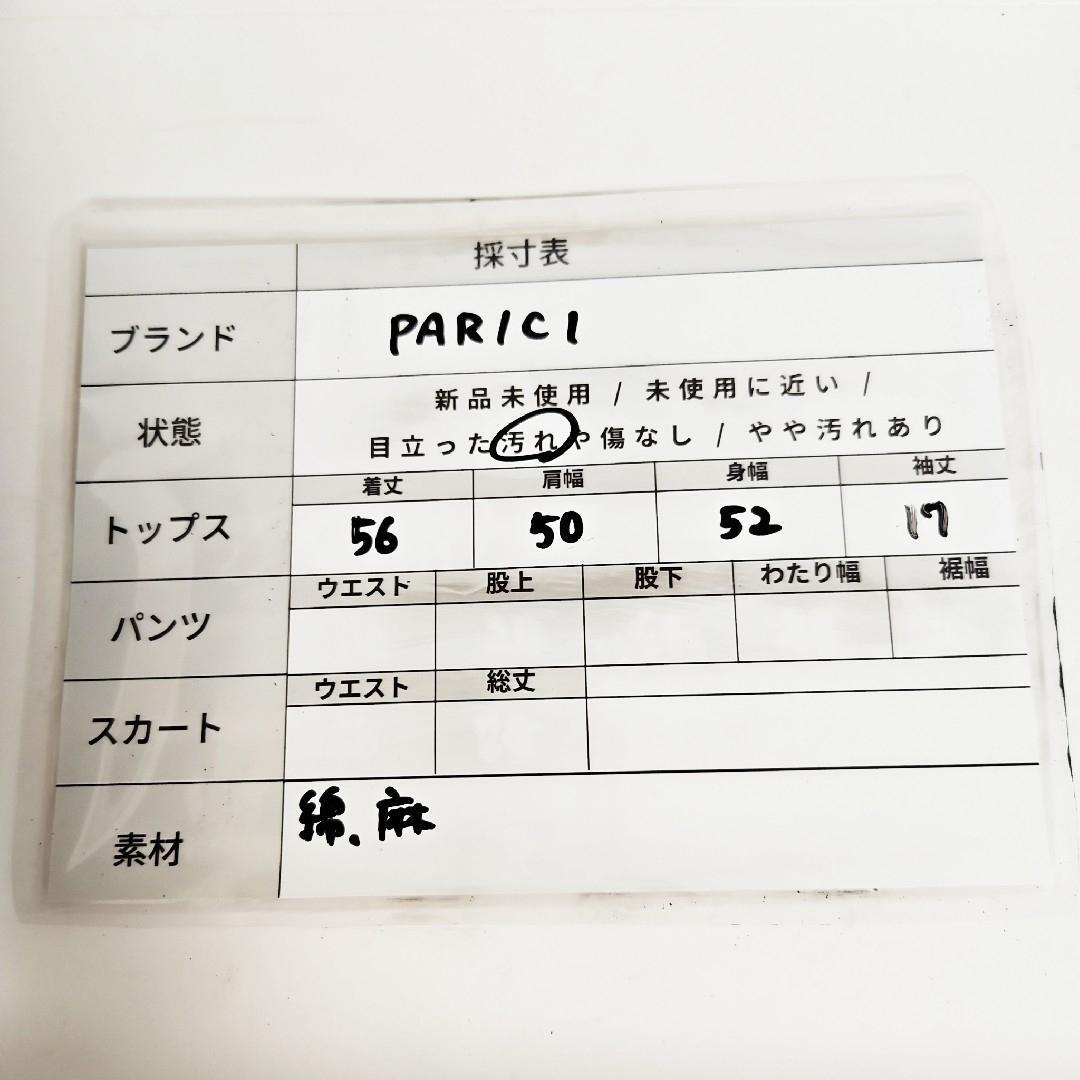 採寸表
ブランド PARICI
新品未使用 / 未使用に近い /
状態
目立った汚れや傷なし / やや汚れあり
着丈 肩幅 身幅 袖丈
トップス 56 50 52 17
ウエスト 股上 股下 わたり幅 裾幅
パンツ
ウエスト 総丈
スカート
綿、麻
素材